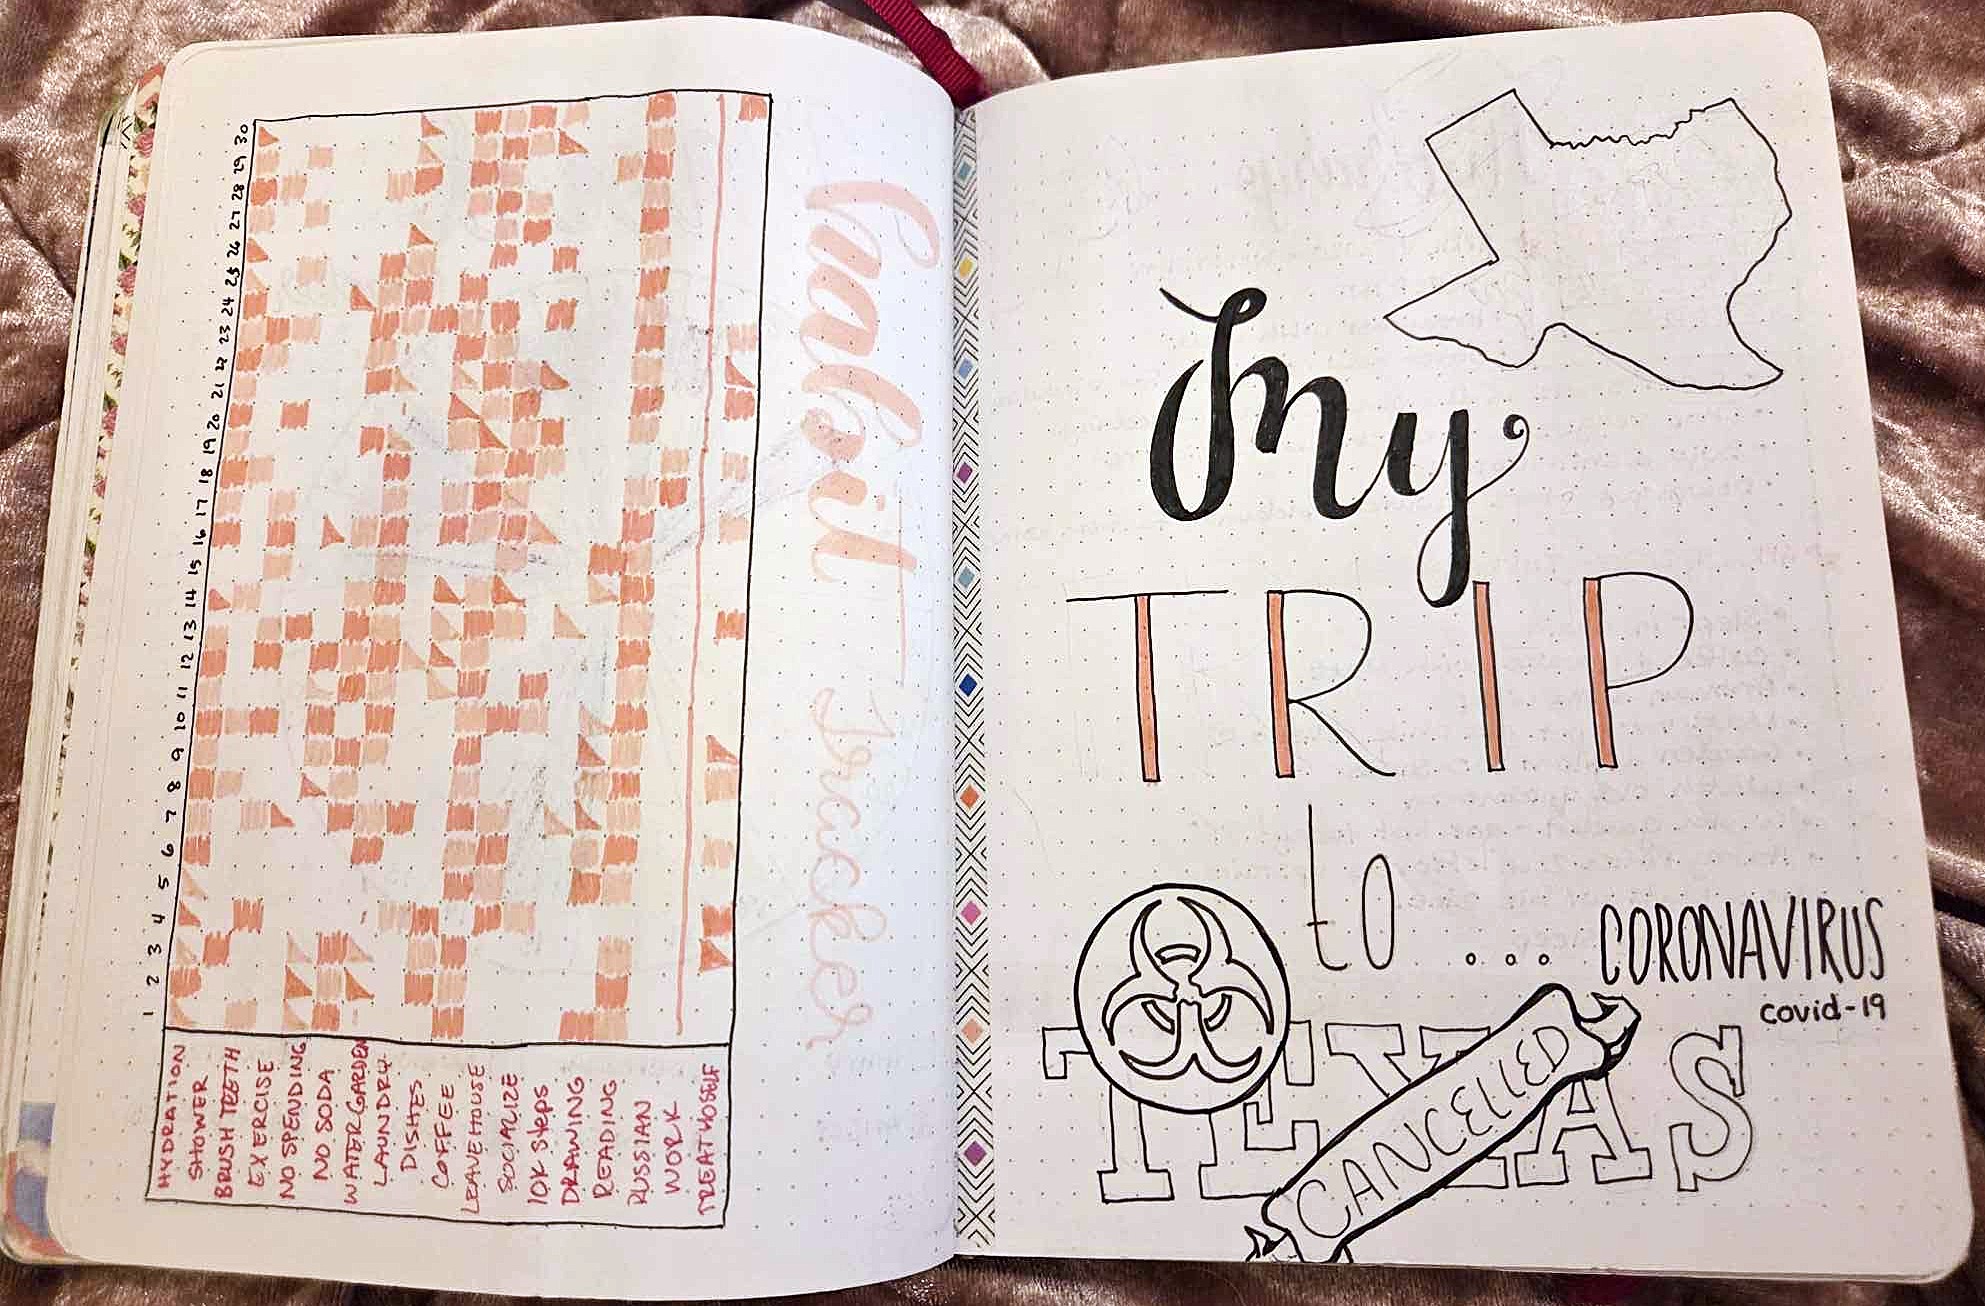 Habit Tracker
1 2 3 4 5 6 7 8 9 10 11 12 13 14 15 16 17 18 19 20 21 22 23 24 25 26 27 28 29 30
HYDRATION
SHOWER
BRUSH TEETH
EXERCISE
NO SPENDING
NO SODA
WATER GARDEN
LAUNDRY
DISHES
COFFEE
LEAVE HOUSE
SOCIALIZE
10K steps
DRAWING
READING
RUSSIAN
WORK
TREAT YOSELF
My
TRIP
to ...
CORONAVIRUS
covid-19
TEXAS
CANCELLED